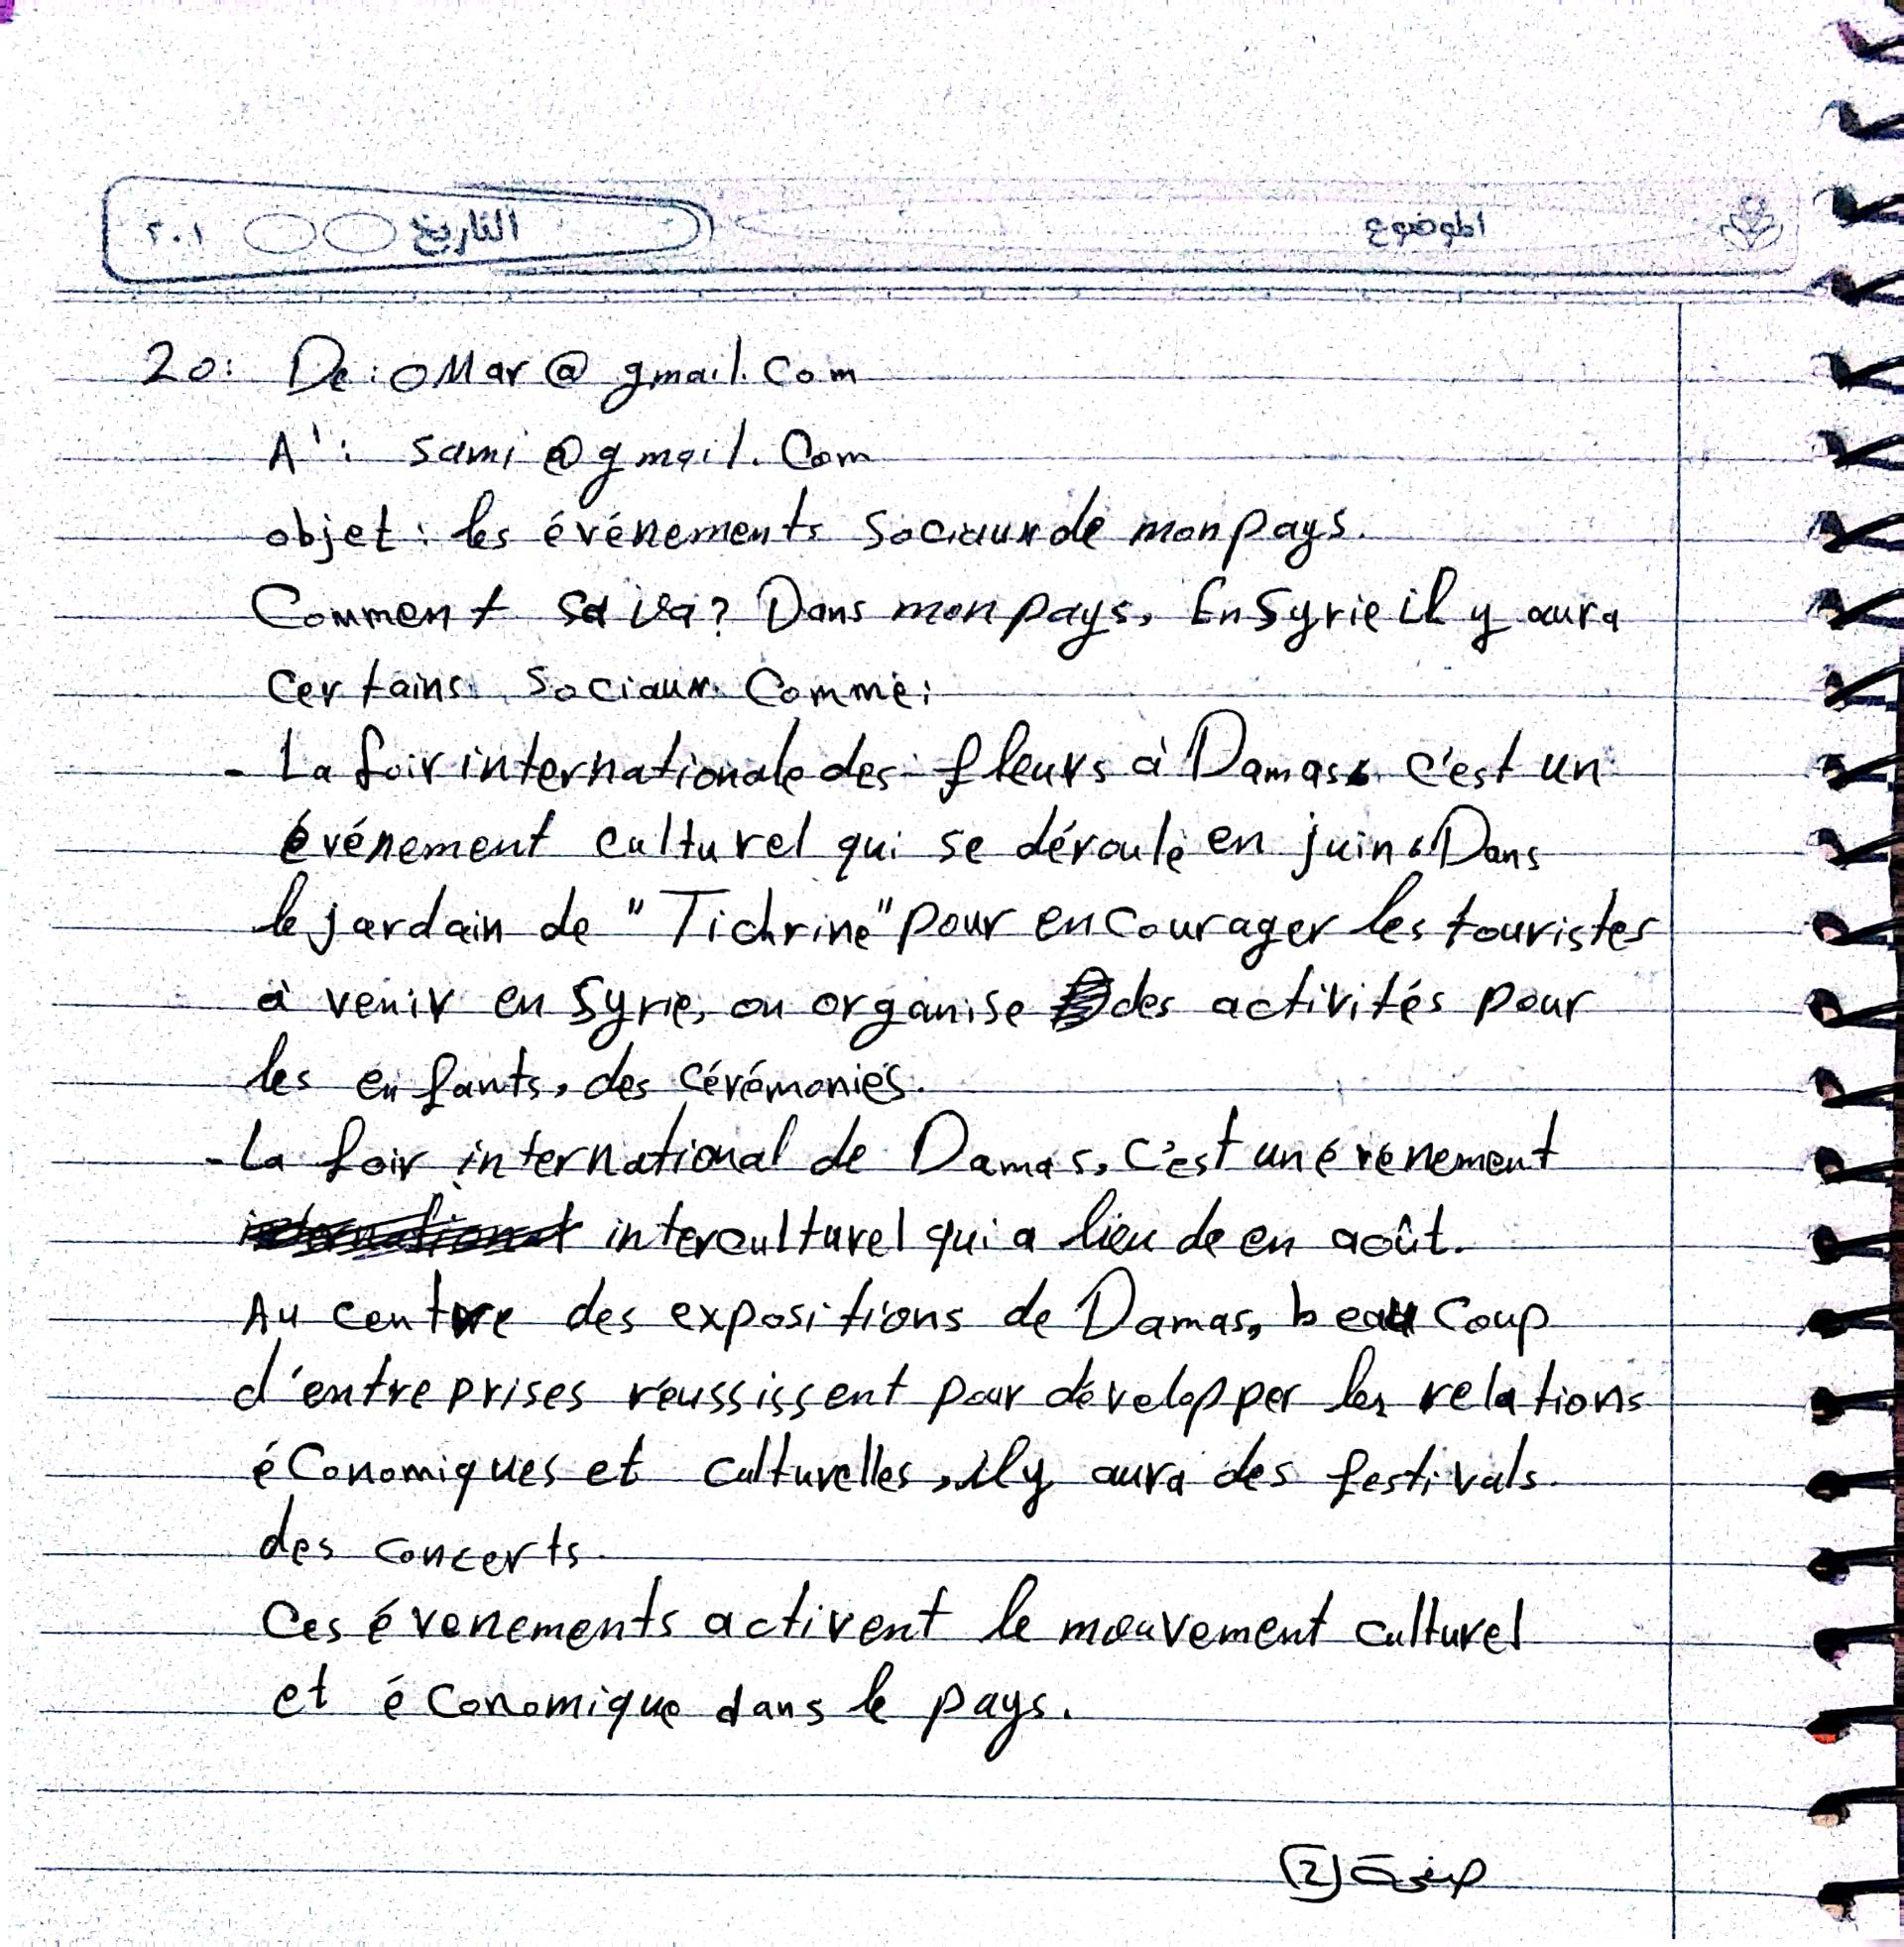 الموضوع
التاريخ ٢٠١
20: De: OMar@gmail.Com
A': sami@gmail.Com
objet: les événements Sociaux de mon pays.
Comment sa va? Dans mon pays, En Syrie il y aura
Certains Sociaux Comme:
- La foir internationale des fleurs à Damas. C'est un
événement culturel qui se déroule en juin. Dans
le jardain de "Tichrine" pour encourager les touristes
à venir en Syrie, on organise des activités pour
les enfants, des Cérémonies.
- La foir international de Damas, C'est un évenement
international interculturel qui a lieu de en août.
Au centre des expositions de Damas, beau Coup
d'entreprises réussissent pour développer les relations
éConomiques et culturelles, il y aura des festivals.
des concerts.
Ces évenements activent le mouvement culturel
et éConomique dans le pays.
صفحة (2)